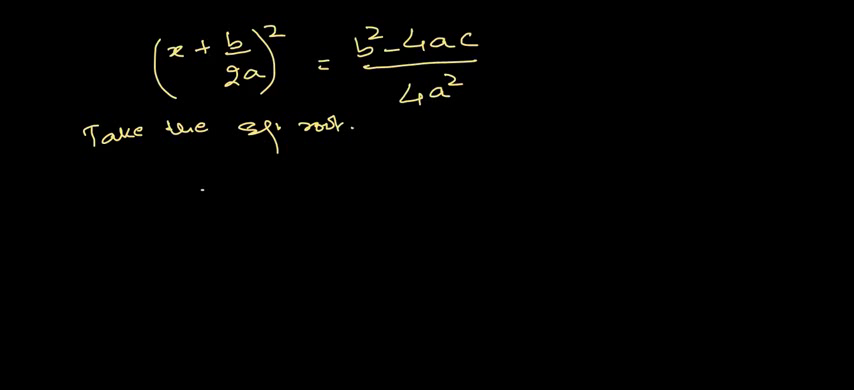 (x + b/2a)² = b² - 4ac / 4a²
Take the sq. root.